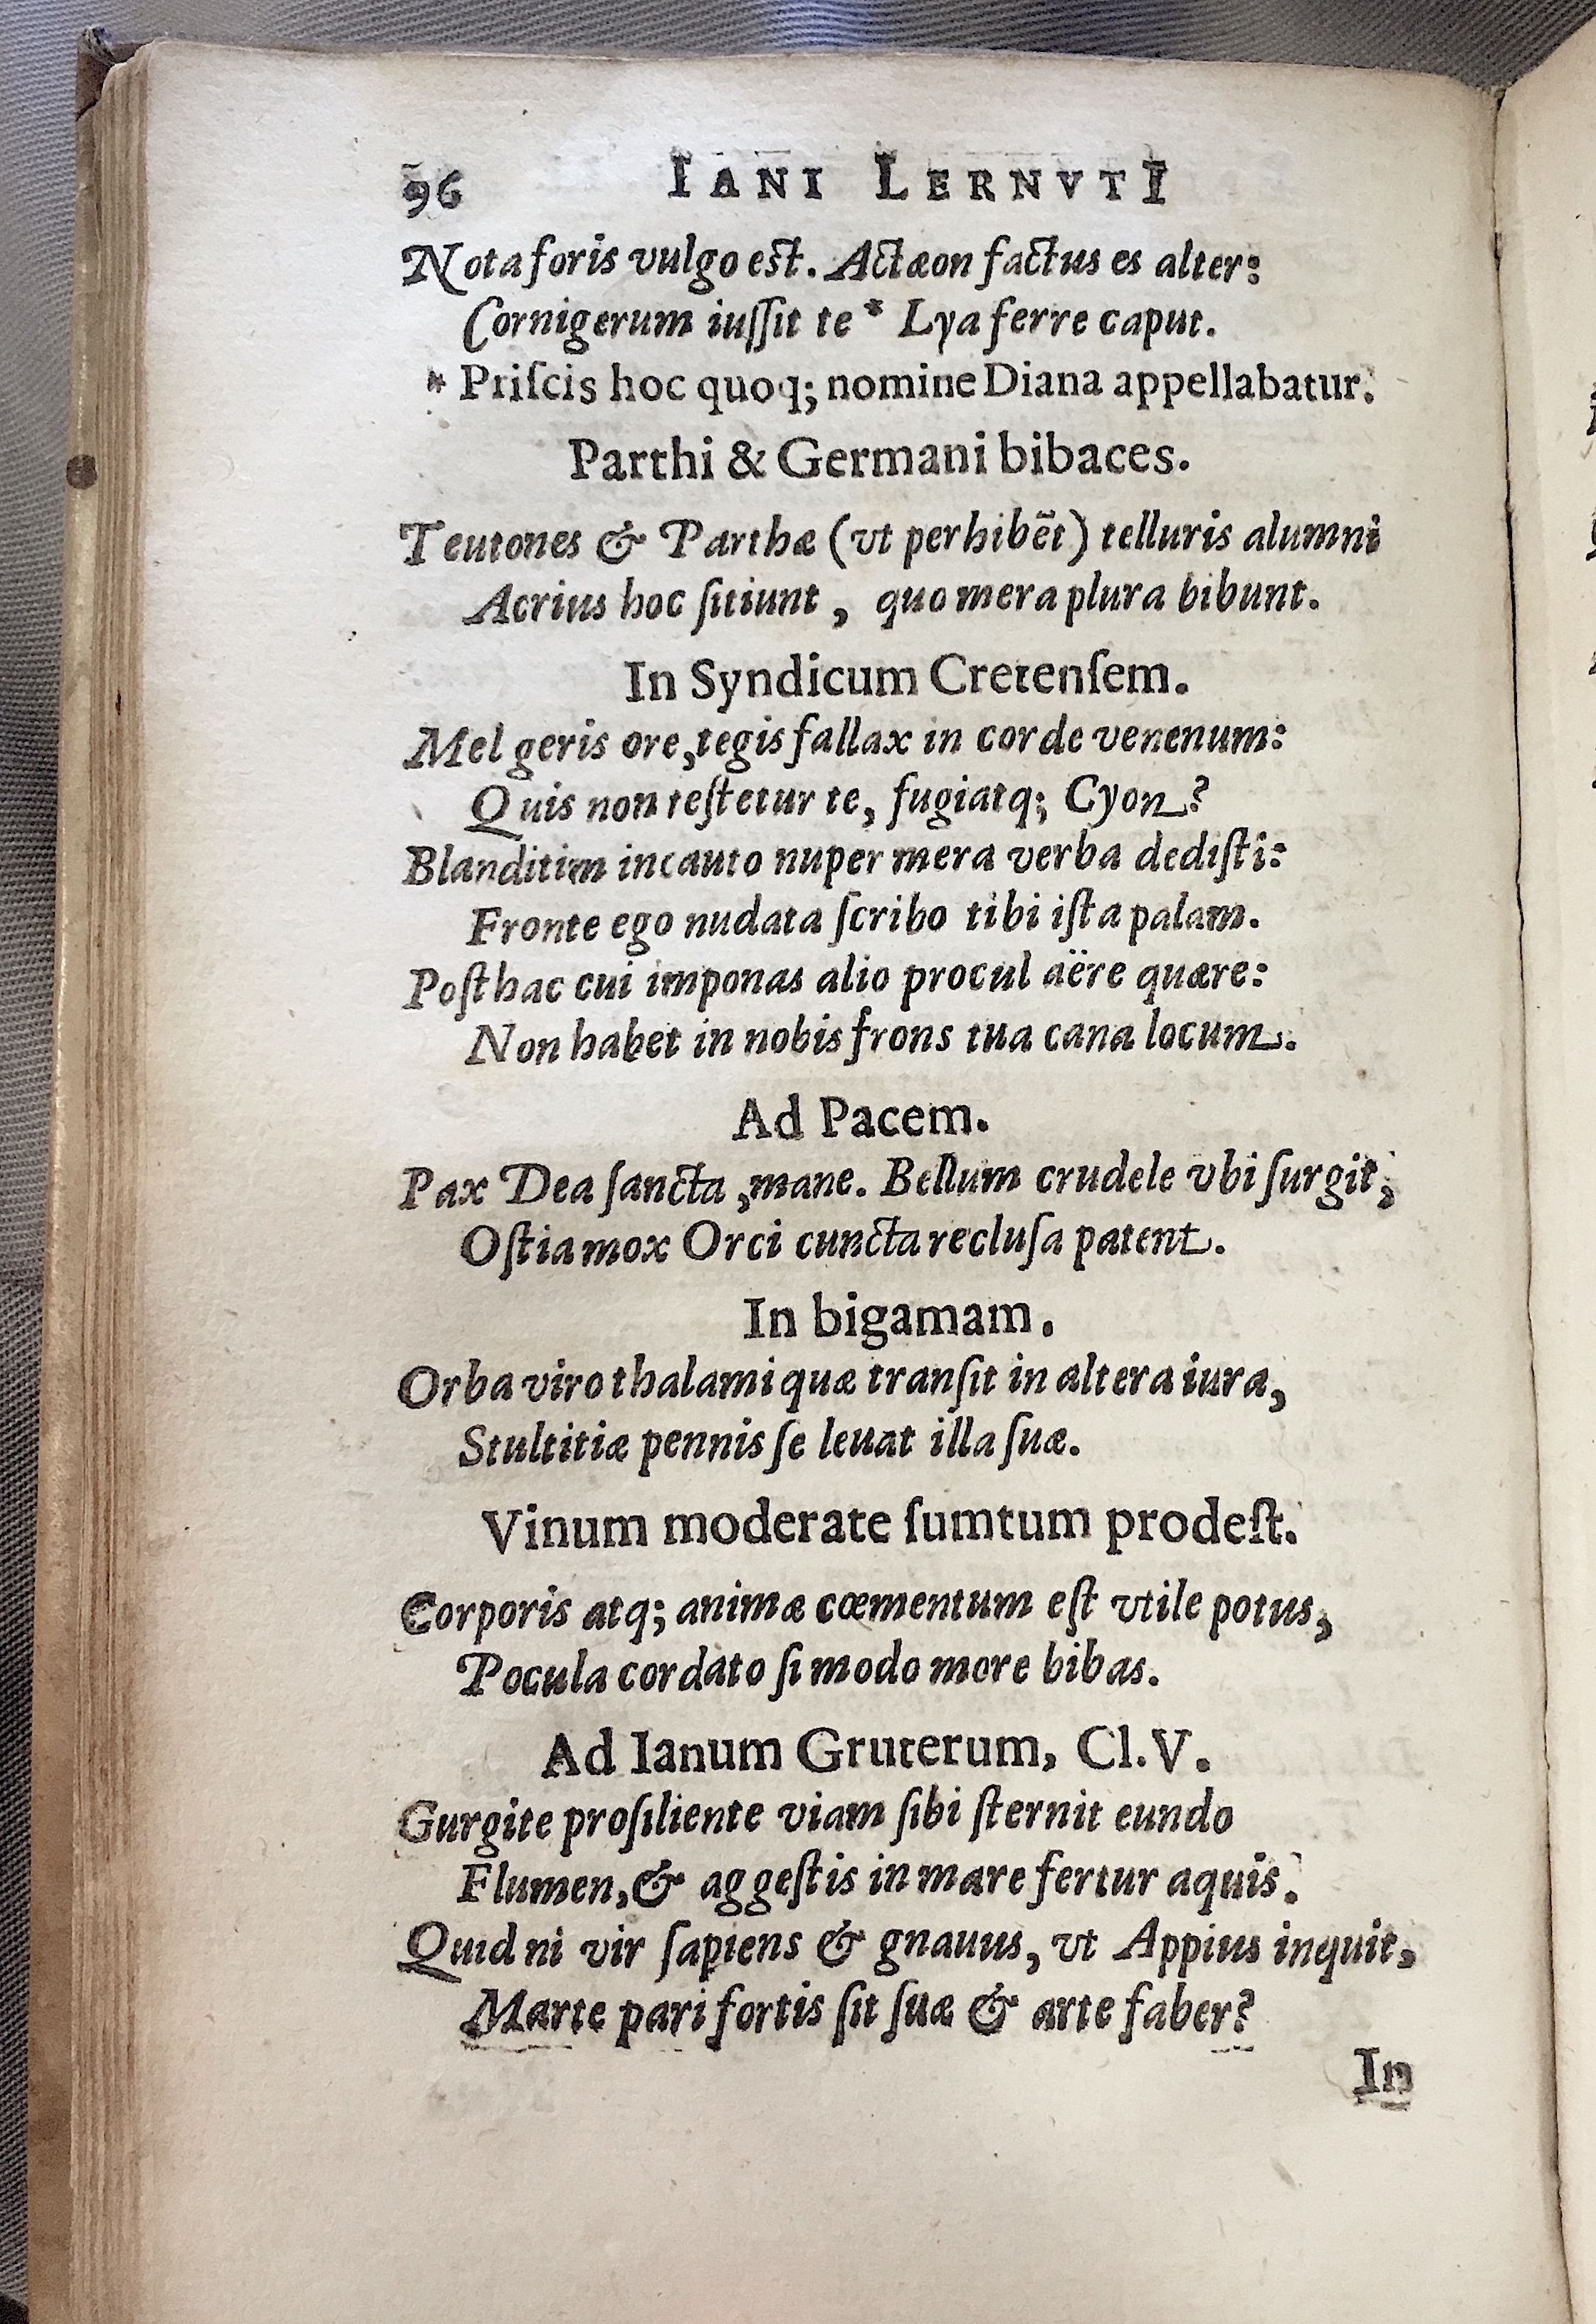 96 IANI LERNVTI
Nota foris vulgo est. Actæon factus es alter:
Cornigerum iuſſit te * Lya ferre caput.
* Priſcis hoc quoq; nomine Diana appellabatur.
Parthi & Germani bibaces.
Teutones & Parthæ (vt perhibēt) telluris alumni
Acrius hoc ſitiunt, quo mera plura bibunt.
In Syndicum Cretenſem.
Mel geris ore, tegis fallax in corde venenum:
Quis non teſtetur te, fugiatq; Cyon?
Blanditim incauto nuper mera verba dediſti:
Fronte ego nudata ſcribo tibi iſta palam.
Poſthac cui imponas alio procul aëre quære:
Non habet in nobis frons tua cana locum.
Ad Pacem.
Pax Dea ſancta, mane. Bellum crudele vbi ſurgit,
Oſtia mox Orci cuncta recluſa patent.
In bigamam.
Orba viro thalami quæ tranſit in altera iura,
Stultitiæ pennis ſe leuat illa ſuæ.
Vinum moderate ſumtum prodeſt.
Corporis atq; animæ cœmentum eſt vtile potus,
Pocula cordato ſi modo more bibas.
Ad Ianum Gruterum, Cl. V.
Gurgite proſiliente viam ſibi ſternit eundo
Flumen, & aggeſtis in mare fertur aquis.
Quid ni vir ſapiens & gnauus, vt Appius inquit,
Marte pari fortis ſit ſuæ & arte faber?
In